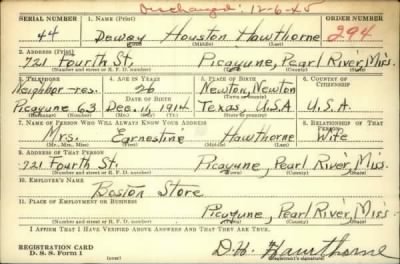 Discharged: 12-6-45
SERIAL NUMBER 1. NAME (Print) ORDER NUMBER
44 Dewey Houston Hawthorne 294
(First) (Middle) (Last)
2. ADDRESS (Print)
721 Fourth St. Picayune, Pearl River, Miss.
(Number and street or R. F. D. number) (Town) (County) (State)
3. TELEPHONE 4. AGE IN YEARS 5. PLACE OF BIRTH 6. COUNTRY OF CITIZENSHIP
Neighbor-res. 26 Newton, Newton
DATE OF BIRTH
Picayune 63 Dec. 11, 1914 Texas, U.S.A U.S.A.
7. NAME OF PERSON WHO WILL ALWAYS KNOW YOUR ADDRESS 8. RELATIONSHIP OF THAT PERSON
Mrs. Earnestine Hawthorne Wife
(Mr., Mrs., Miss) (First) (Middle) (Last)
9. ADDRESS OF THAT PERSON
721 Fourth St. Picayune, Pearl River, Miss.
(Number and street or R. F. D. number) (Town) (County) (State)
10. EMPLOYER'S NAME
Boston Store
11. PLACE OF EMPLOYMENT OR BUSINESS
Picayune, Pearl River, Miss.
(Number and street or R. F. D. number) (Town) (County) (State)
I AFFIRM THAT I HAVE VERIFIED ABOVE ANSWERS AND THAT THEY ARE TRUE.
REGISTRATION CARD
D. S. S. Form 1
D. H. Hawthorne
(Registrant's signature)